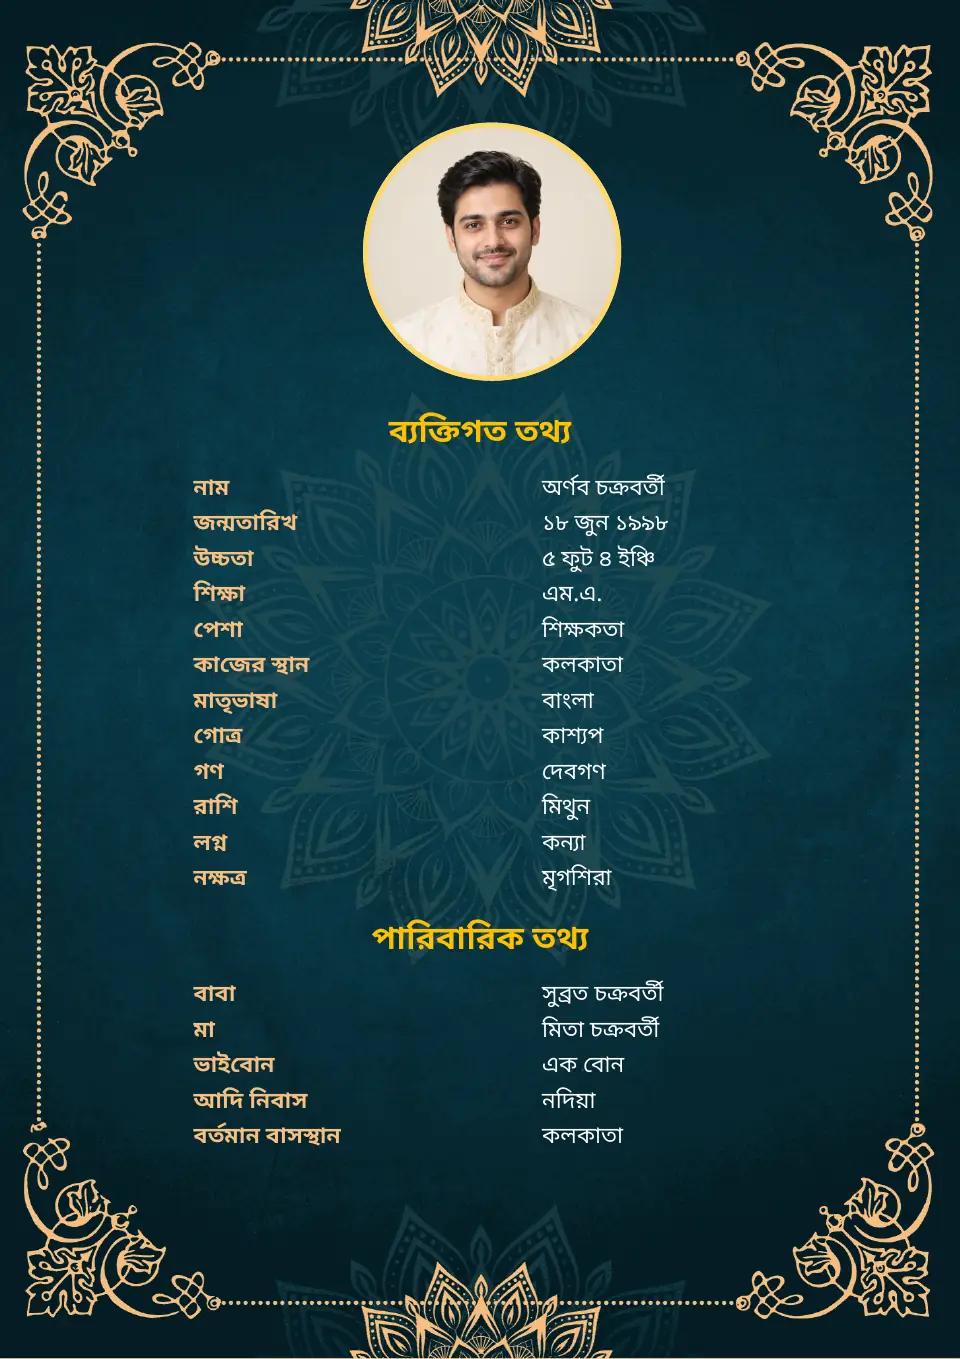 ব্যক্তিগত তথ্য
নাম অর্ণব চক্রবর্তী
জন্মতারিখ ১৮ জুন ১৯৯৮
উচ্চতা ৫ ফুট ৪ ইঞ্চি
শিক্ষা এম.এ.
পেশা শিক্ষকতা
কাজের স্থান কলকাতা
মাতৃভাষা বাংলা
গোত্র কাশ্যপ
গণ দেবগণ
রাশি মিথুন
লগ্ন কন্যা
নক্ষত্র মৃগশিরা
পারিবারিক তথ্য
বাবা সুব্রত চক্রবর্তী
মা মিতা চক্রবর্তী
ভাইবোন এক বোন
আদি নিবাস নদিয়া
বর্তমান বাসস্থান কলকাতা